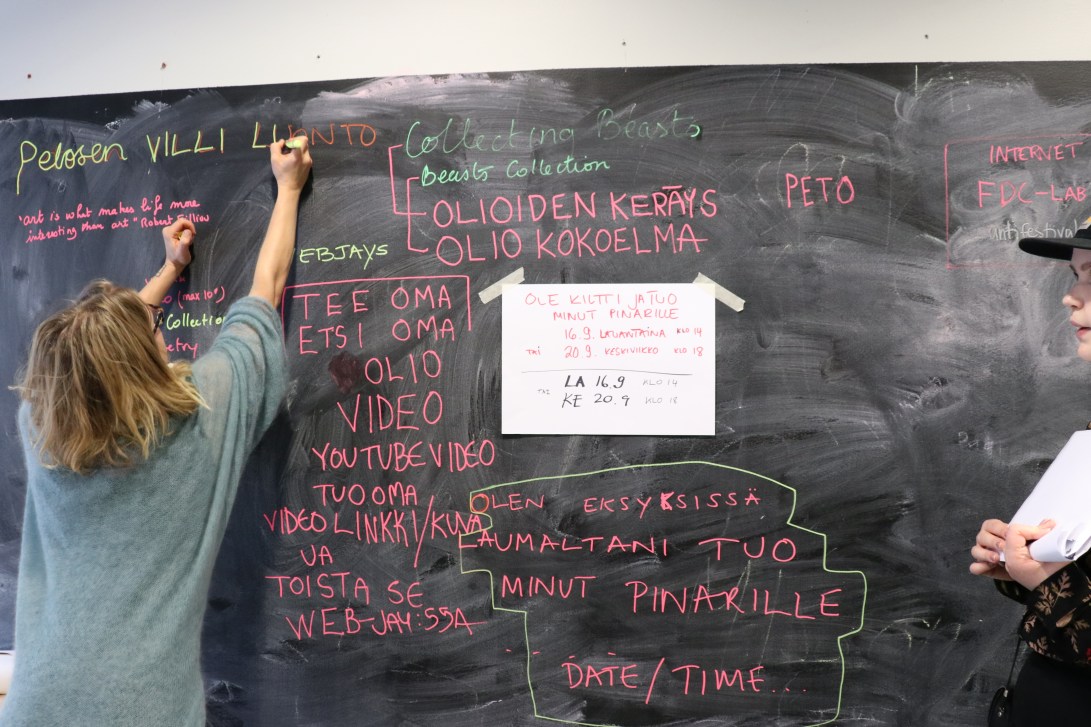 Pelosen VILLI LUONTO
"art is what makes life more
interesting than art" Robert Filliou
(max 10")
Collection
Collecting Beasts
Beasts Collection
OLIOIDEN KERÄYS
OLIO KOKOELMA
PETO
INTERNET
FDC-LAB
antifestival
EBJAYS
TEE OMA
ETSI OMA
OLIO
VIDEO
YOUTUBE VIDEO
TUO OMA
VIDEO LINKKI/KUVA
JA
TOISTA SE
WEB-JAY:SSA
OLE KILTTI JA TUO
MINUT PINARILLE
16.9. LAUANTAINA KLO 14
TAI 20.9. KESKIVIIKKO KLO 18
LA 16.9 KLO 14
TAI KE 20.9 KLO 18
OLEN EKSYKSISSÄ
LAUMALTANI TUO
MINUT PINARILLE
DATE/TIME...